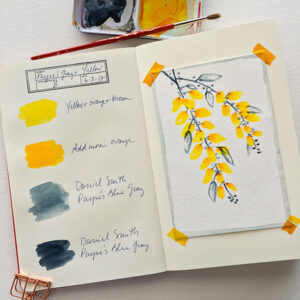 Payne's Gray + Yellow
Yellow + orange + brown
Add more orange
Daniel Smith
Payne's Blue Gray
Daniel Smith
Payne's Blue Gray